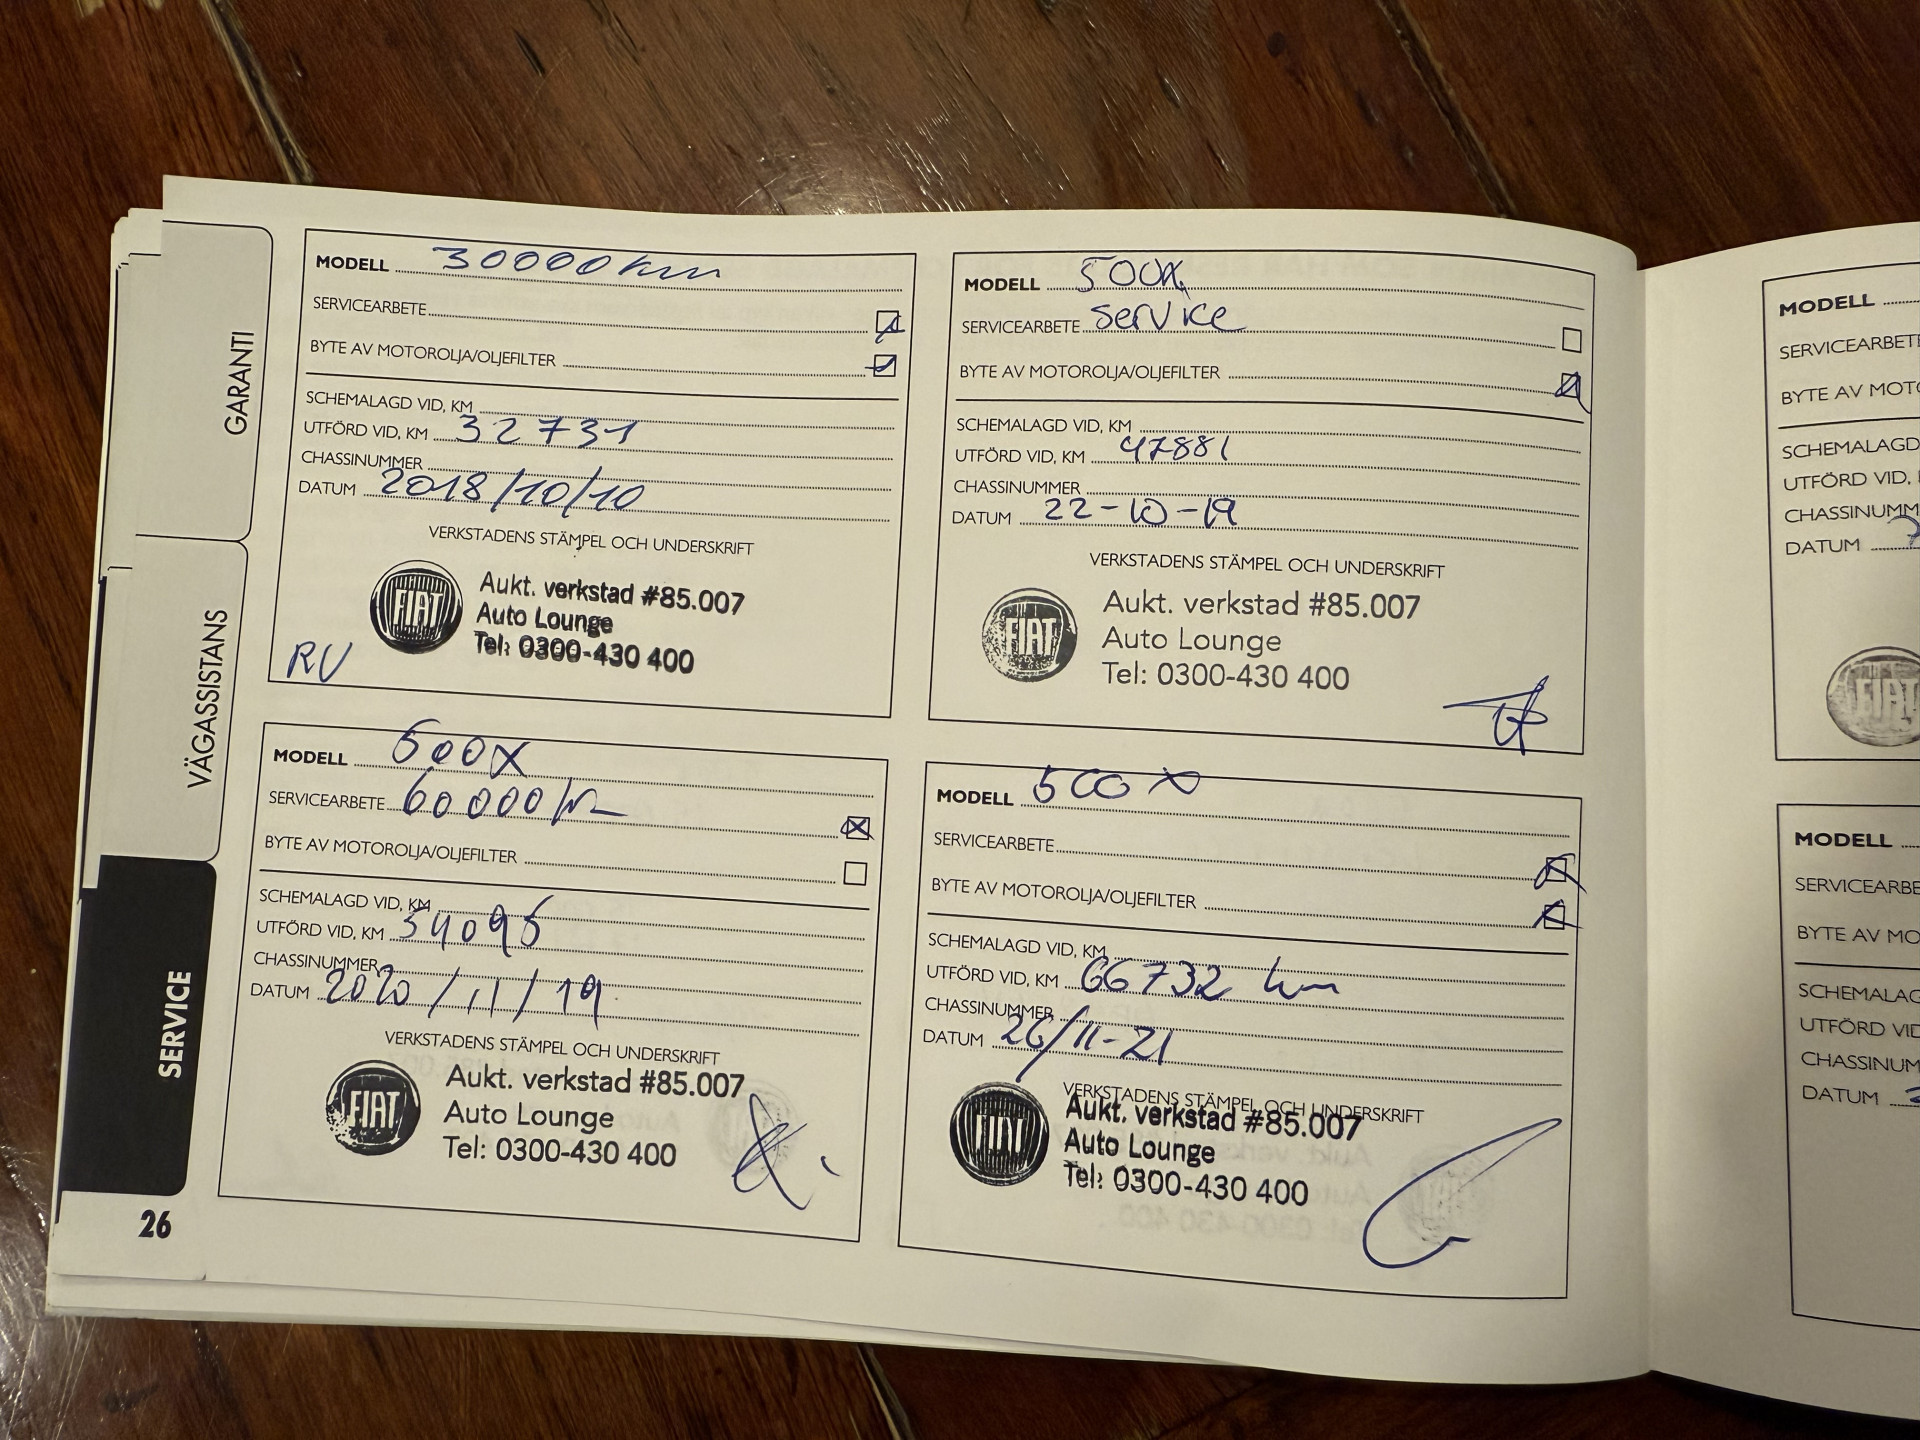 GARANTI
VÄGASSISTANS
SERVICE
26
MODELL 30000 km
SERVICEARBETE
BYTE AV MOTOROLJA/OLJEFILTER
SCHEMALAGD VID, KM
UTFÖRD VID, KM 32731
CHASSINUMMER
DATUM 2018/10/10
VERKSTADENS STÄMPEL OCH UNDERSKRIFT
FIAT
Aukt. verkstad #85.007
Auto Lounge
Tel: 0300-430 400
RV
MODELL 500X
SERVICEARBETE service
BYTE AV MOTOROLJA/OLJEFILTER
SCHEMALAGD VID, KM
UTFÖRD VID, KM 47881
CHASSINUMMER
DATUM 22-10-19
VERKSTADENS STÄMPEL OCH UNDERSKRIFT
FIAT
Aukt. verkstad #85.007
Auto Lounge
Tel: 0300-430 400
MODELL 500X
SERVICEARBETE 60000 km
BYTE AV MOTOROLJA/OLJEFILTER
SCHEMALAGD VID, KM
UTFÖRD VID, KM 54095
CHASSINUMMER
DATUM 2020/11/19
VERKSTADENS STÄMPEL OCH UNDERSKRIFT
FIAT
Aukt. verkstad #85.007
Auto Lounge
Tel: 0300-430 400
MODELL 500X
SERVICEARBETE
BYTE AV MOTOROLJA/OLJEFILTER
SCHEMALAGD VID, KM
UTFÖRD VID, KM 66732 km
CHASSINUMMER
DATUM 26/11-21
VERKSTADENS STÄMPEL OCH UNDERSKRIFT
FIAT
Aukt. verkstad #85.007
Auto Lounge
Tel: 0300-430 400
MODELL
SERVICEARBETE
BYTE AV MOTO
SCHEMALAGD
UTFÖRD VID,
CHASSINUMM
DATUM
FIAT
MODELL
SERVICEARBE
BYTE AV MO
SCHEMALAG
UTFÖRD VID
CHASSINUM
DATUM